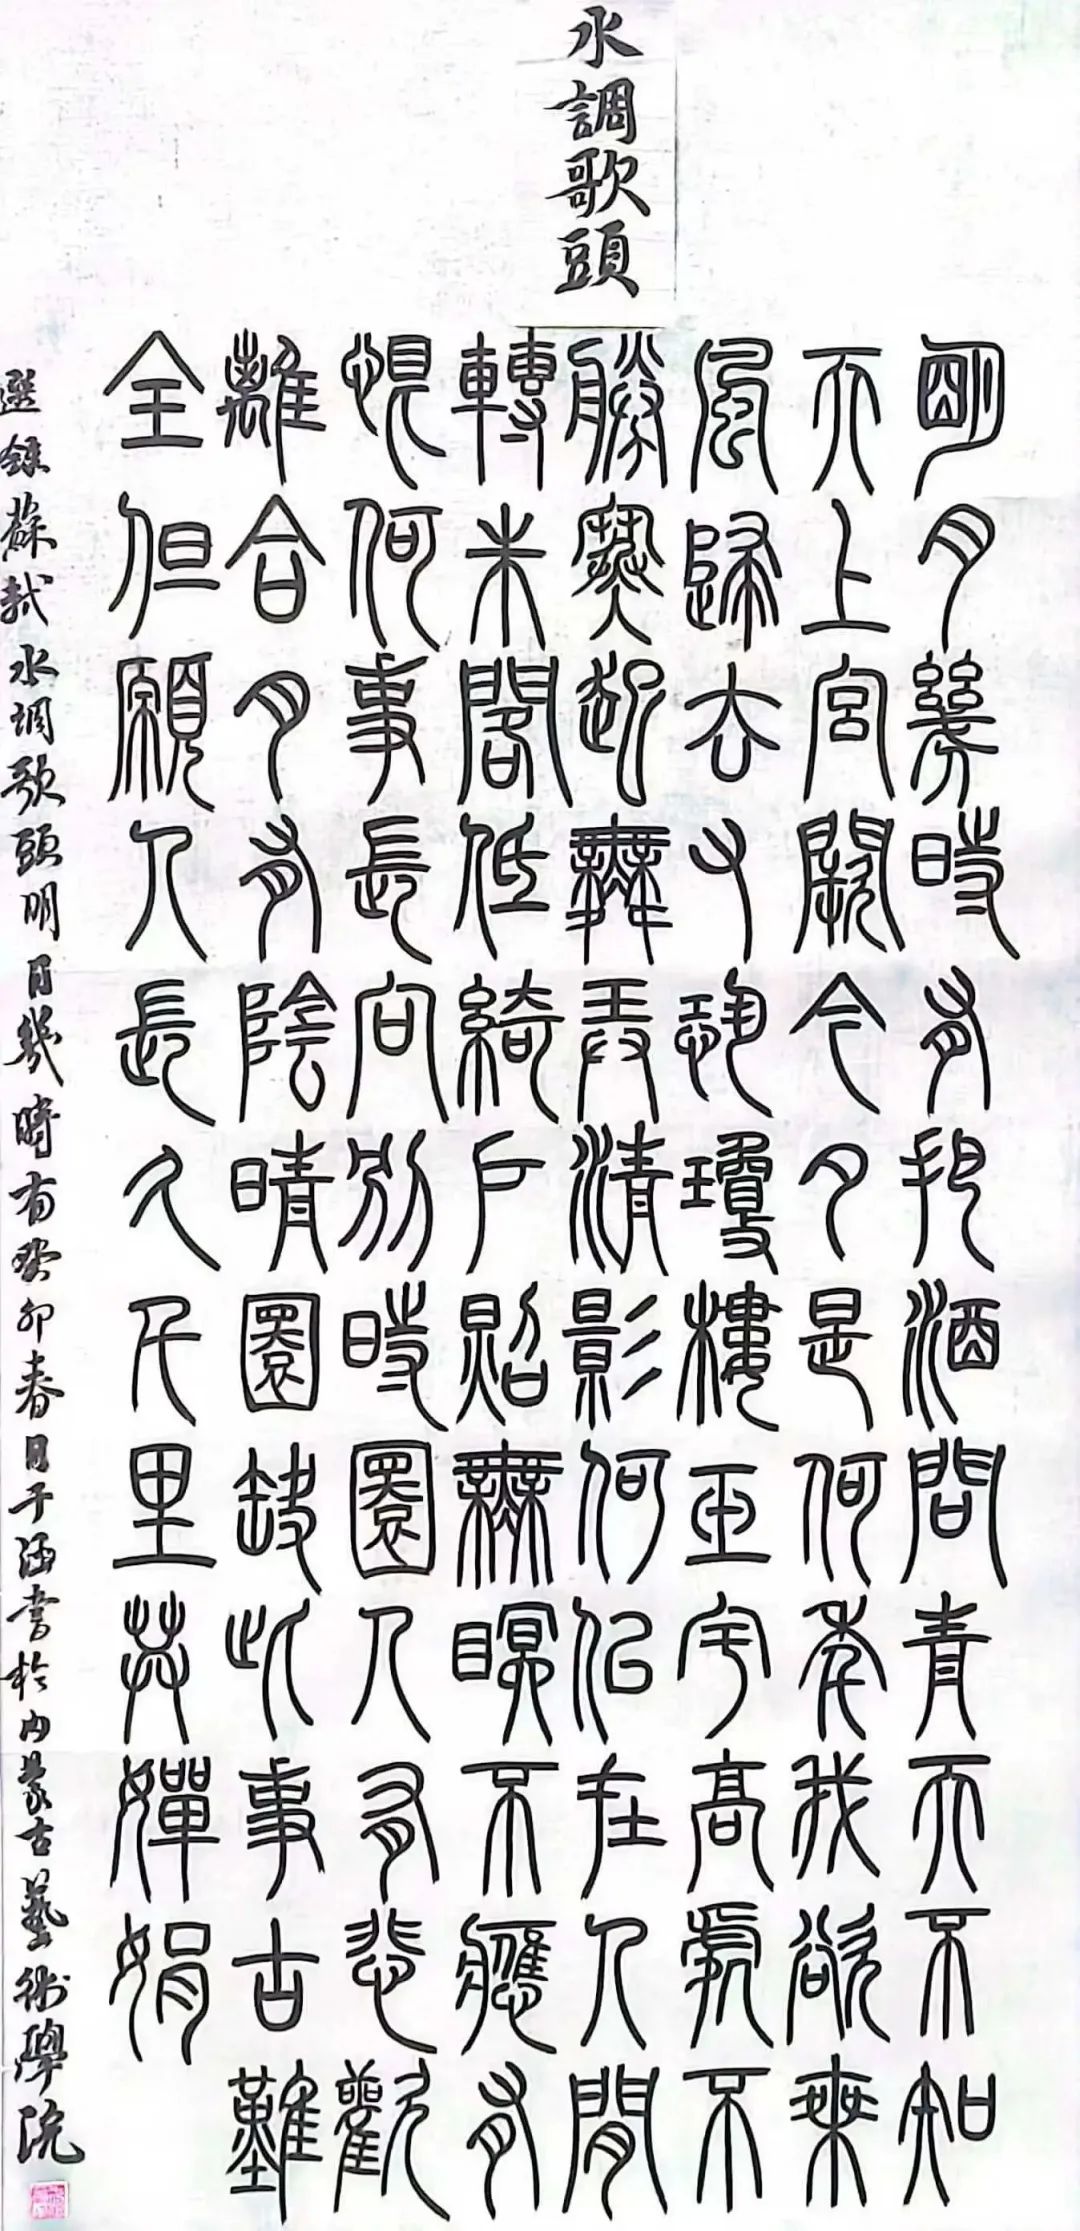 水調歌頭
明月幾時有把酒問青天不知
天上宮闕今夕是何年我欲乘
風歸去又恐瓊樓玉宇高處不
勝寒起舞弄清影何似在人間
轉朱閣低綺戶照無眠不應有
恨何事長向別時圓人有悲歡
離合月有陰晴圓缺此事古難
全但願人長久千里共嬋娟
選錄蘇軾水調歌頭明月幾時有癸卯春月子涵書於內蒙古藝術學院